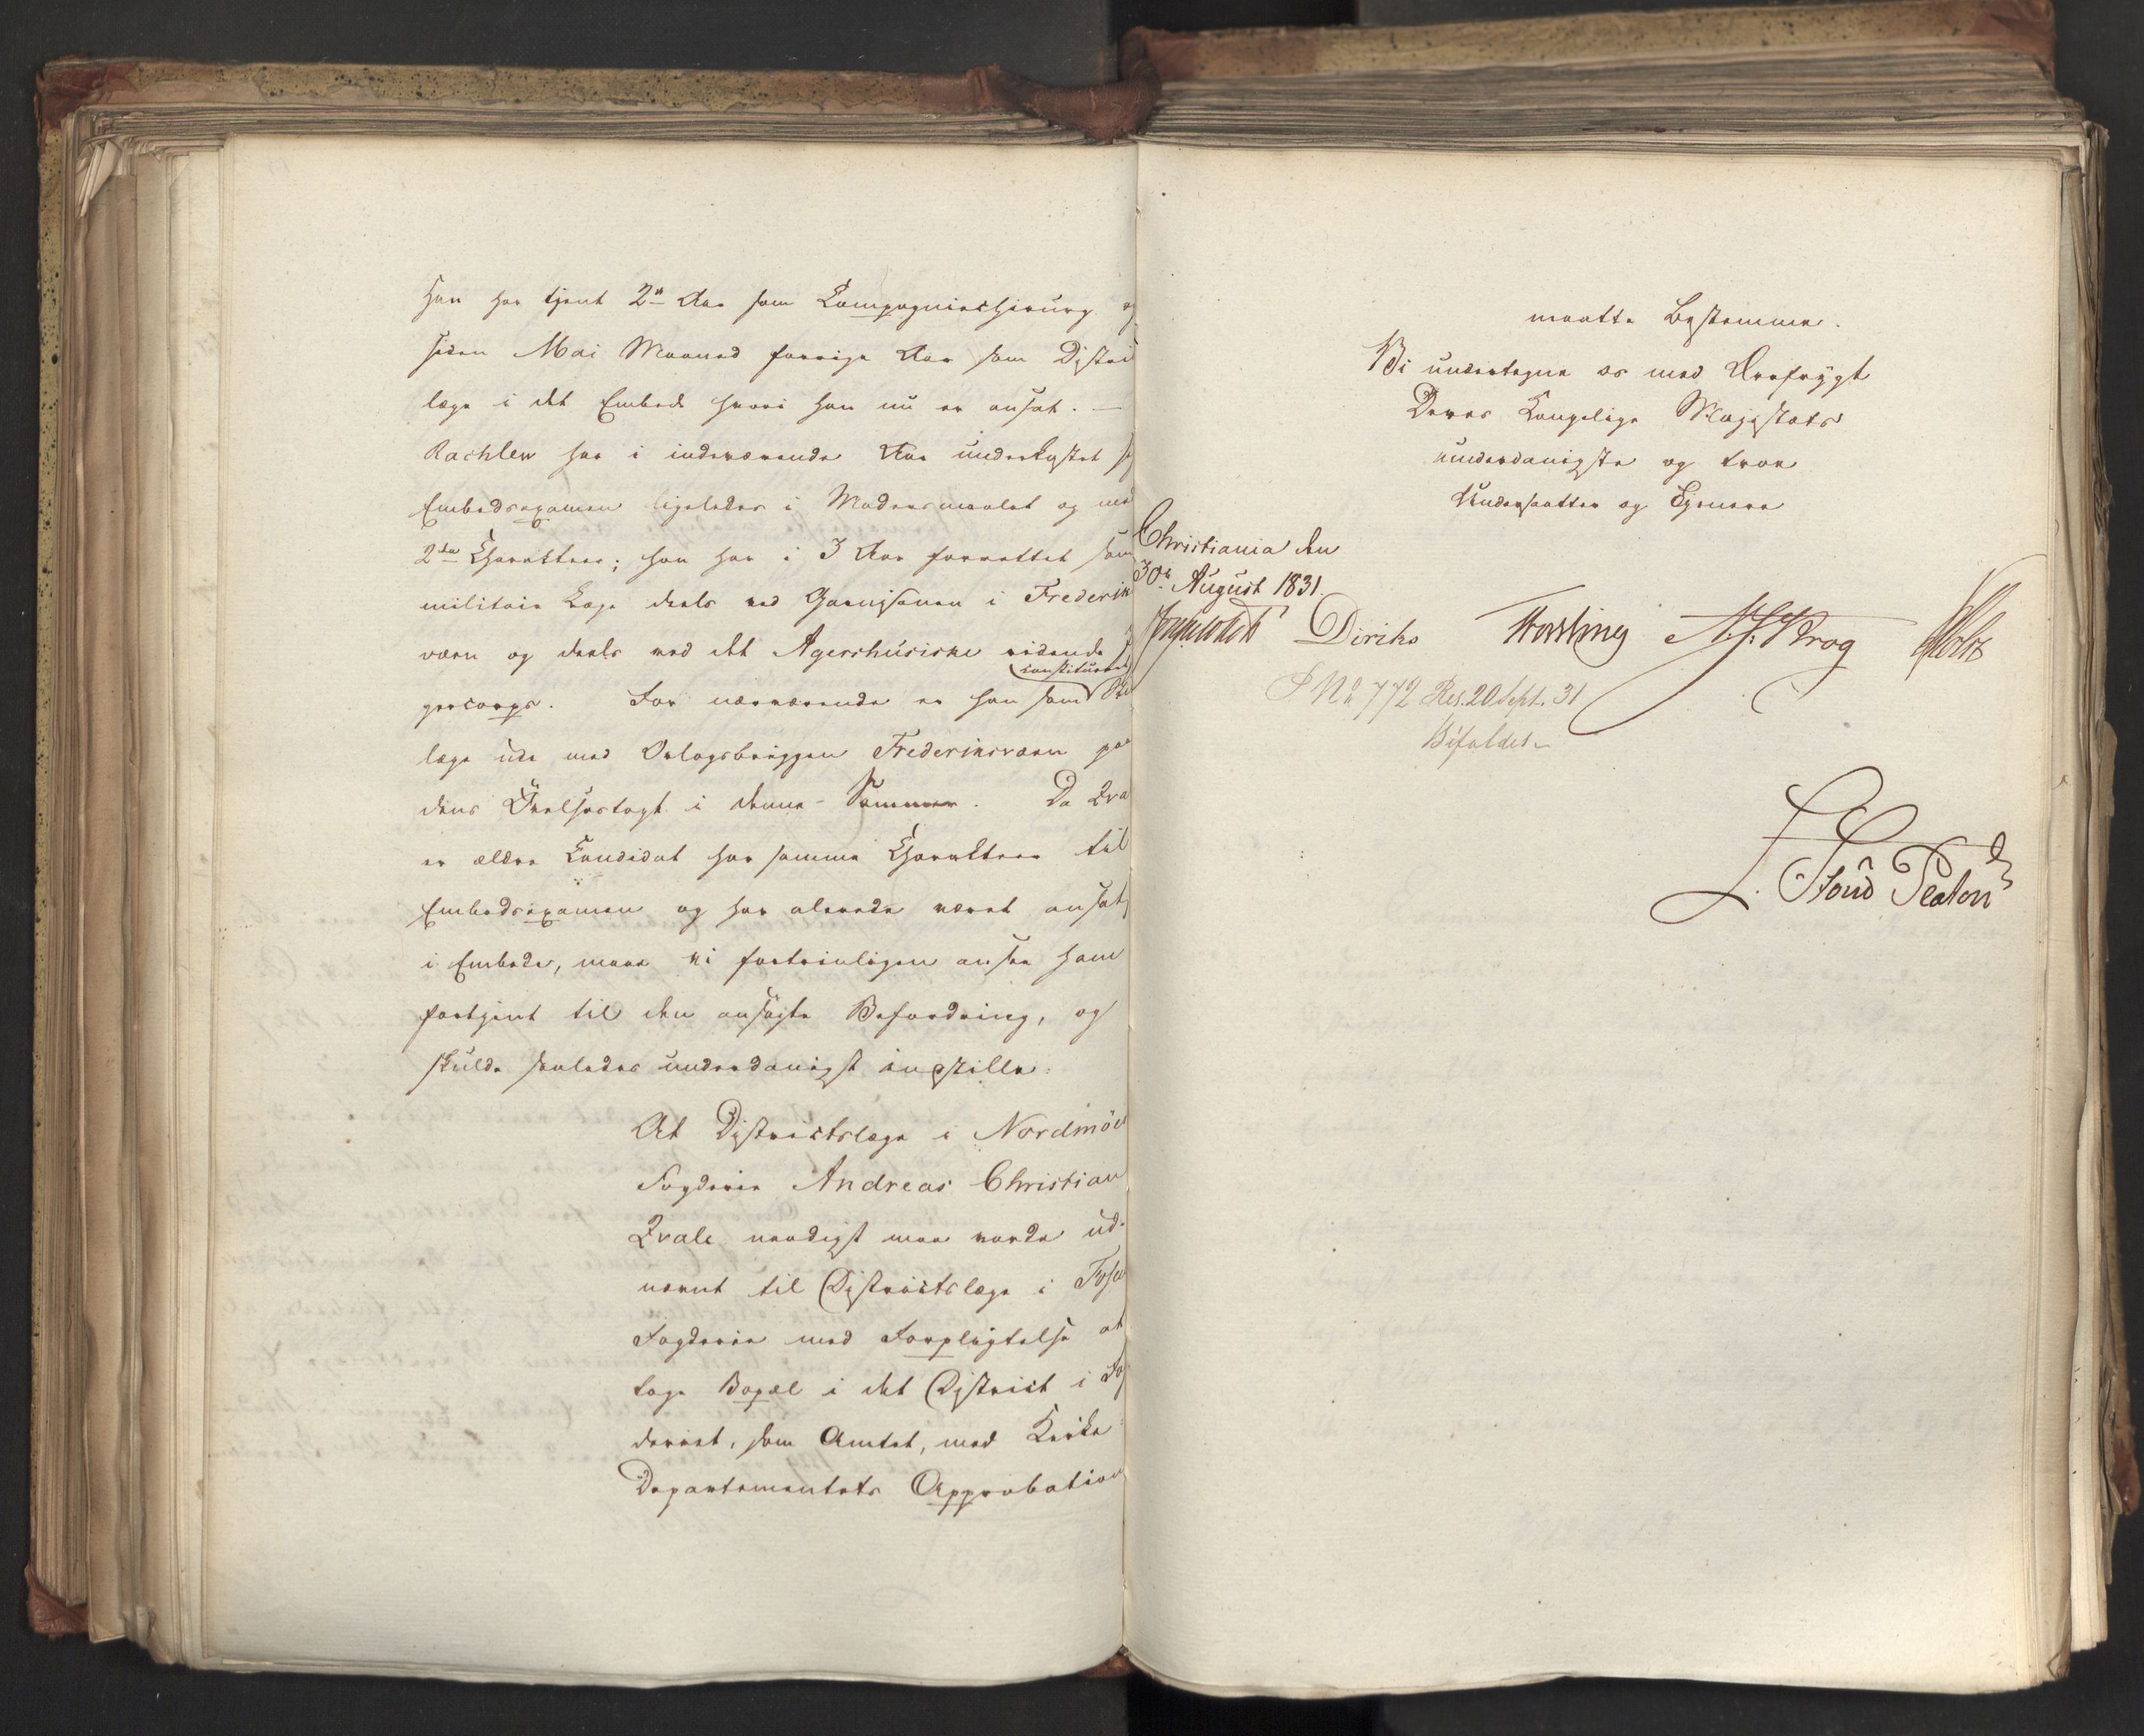 han har tjent 2de Aar som Compagniechirurg og
siden Mai Maaned forrige Aar som Distri
læge i det Embede hvori han nu er ansat. —
Rachlew har i indeværende Aar underkastet sig
Embedsexamen ligeledes i Modersmaalet og med
2den Charakteer; han har i 3 Aar forrettet som
militair Læge deels ved Garnisonen i Frederiks
værn og deels ved det Agershusiske ridende Jæ
gercorps. For nærværende er han som constitueret Skibs
læge ude med Orlogsbriggen Frederiksværn paa
dens Øvelsestogt i denne Sommer. Da Qvale
er ældre Candidat har samme Charakteer til
Embedsexamen og har allerede været ansat
i Embede, maae vi fortrinligen ansee ham
fortjent til den ansøgte Befordring, og
skulde saaledes underdanigst indstille:
At Districtslæge i Nordmöers
Fogderie Andreas Christian
Qvale naadigst maa vorde ud-
nævnt til Districtslæge i Fosens
Fogderie med Forpligtelse at
tage Bopæl i det District i Fog
deriet, som Amtet, med Kirke-
Departementets Approbation
maatte bestemme.
Vi undertegne os med Ærefrygt
Deres Kongelige Majestæts
underdanigste og troe
Undersaatter og Tjenere
Christiania den
30te August 1831.
Diriks Fasting N. J. Krog Holst
P No 772 Res. 20 Sept. 31
Bifaldes
L. Stoud Platou